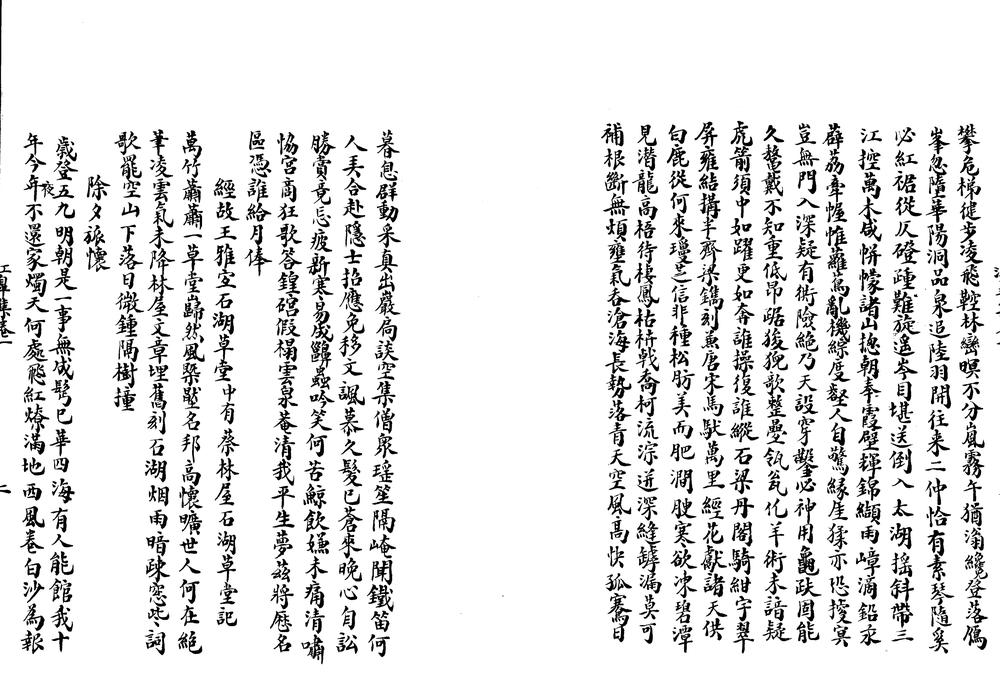 攀危梯徤步凌飛鞚林巒暝不分嵐霧午猶滃纔登落鴈
峯忽墮華陽洞品泉追陸羽開徃来二仲恰有素琴隨奚
必紅裙從仄磴踵難旋遥岑目堪送倒入太湖摇斜帶三
江控萬木咸帡幪諸山揔朝奉霞壁輝錦纈雨嶂滴鉛汞
薜荔牽幄帷蘿蔦亂機綜度壑人自驚縁崖猱亦恐搜冥
豈無門入深疑有衖險絶乃天設穿鑿必神用龜趺固能
久鰲戴不知重低昂踞狻猊欹整疊瓴瓮化羊術未諳疑
虎箭須中如躍更如奔誰操復誰縱石梁丹閣騎紺宇翠
屏雍結搆半齊梁鐫刻兼唐宋馬馱萬里經花獻諸天供
白鹿從何来瓊芝信非種松肪美而肥澗腴寒欲冻碧潭
見潛龍高梧待棲鳳枯枿戟喬柯流淙迸深縫罅漏莫可
補根斷無煩壅氣吞滄海長勢落青天空風高快孤騫日
暮息群動采真出巖扃談空集僧衆瑶笙隔崦聞鐵笛何
人弄合赴隱士招應免移文諷慕久髪已蒼来晩心自訟
勝賞竟忘疲新寒昜成齆蟲吟笑何苦鯨飲嫌未痛清嘯
恊宫商狂歌答鍠硿假榻雲泉菴清我平生夢兹將歴名
區憑誰給月俸
經故王雅宜石湖草堂中有蔡林屋石湖草堂記
萬竹蕭蕭一草堂巋然風槩壓名邦高懷曠世人何在絶
筆凌雲氣未降林屋文章埋舊刻石湖烟雨暗疎窓些詞
歌罷空山下落日微鍾隔樹撞
除夕旅懷
歳登五九明朝是一事無成鬂已華四海有人能館我十
年今夜不還家燭天何處飛紅燎滿地西風卷白沙為報